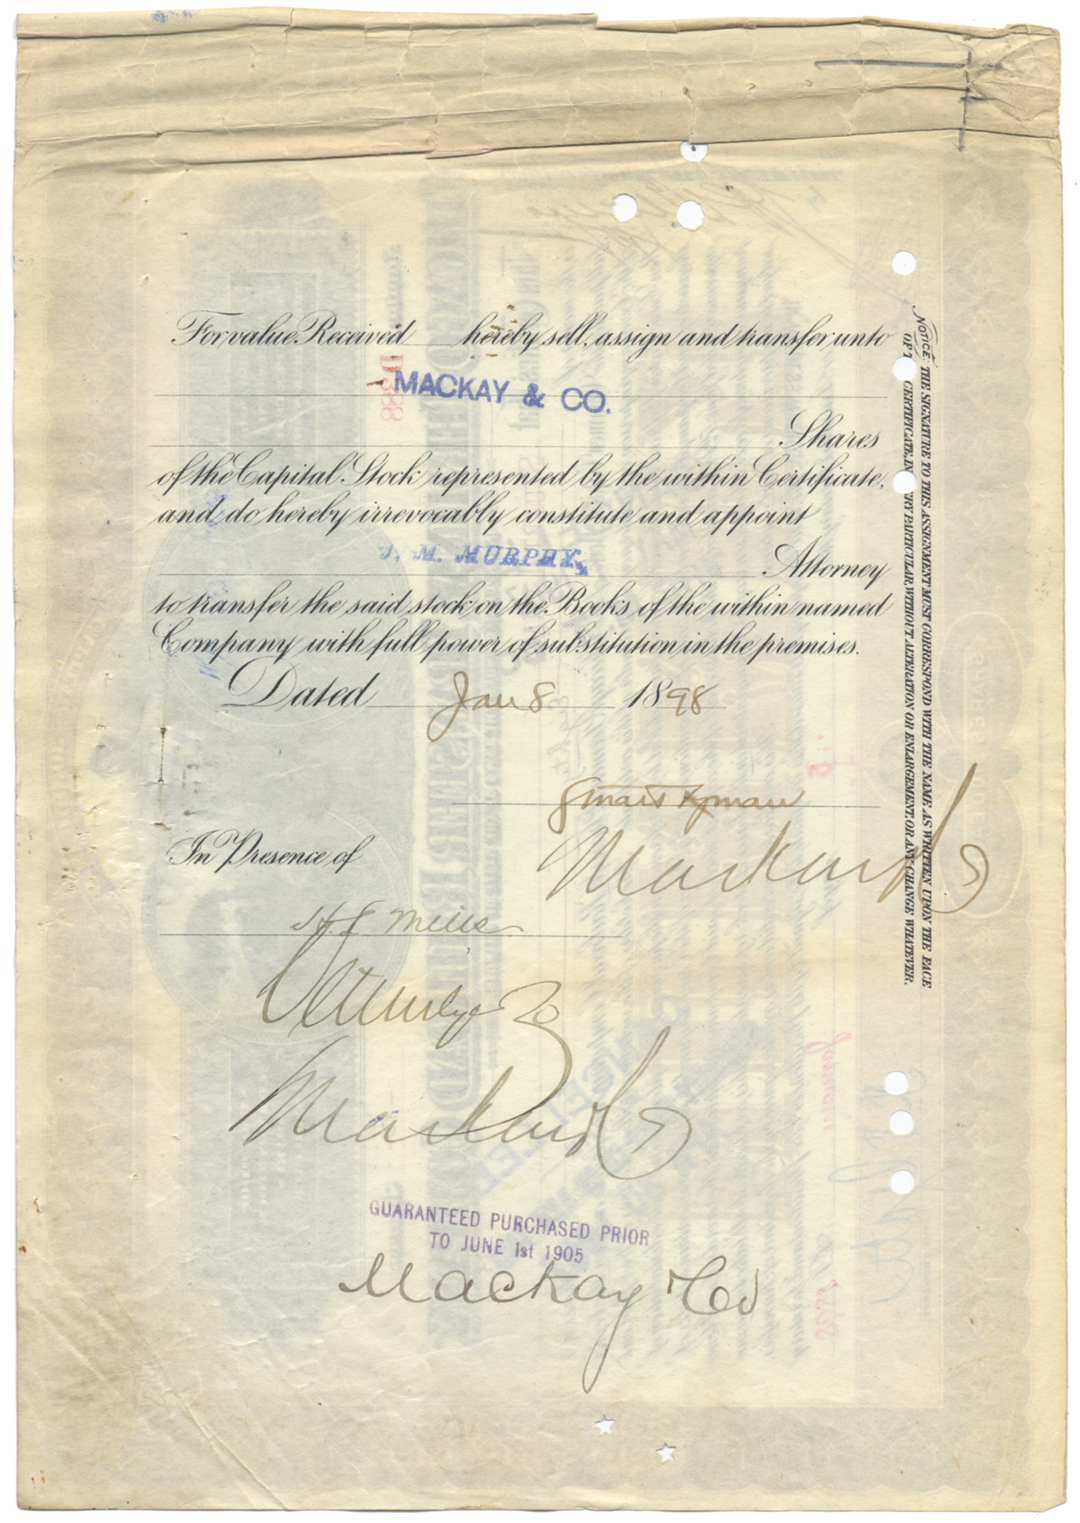 For value Received hereby sell, assign and transfer unto
MACKAY & CO.
Shares
of the Capital Stock represented by the within Certificate,
and do hereby irrevocably constitute and appoint
J. M. MURPHY,
Attorney
to transfer the said stock on the Books of the within named
Company with full power of substitution in the premises.
Dated Jan 8 1898
In Presence of
Mackay & Co
GUARANTEED PURCHASED PRIOR
TO JUNE 1st 1905
Mackay & Co
NOTICE: THE SIGNATURE TO THIS ASSIGNMENT MUST CORRESPOND WITH THE NAME AS WRITTEN UPON THE FACE
CERTIFICATE, IN PARTICULAR WITHOUT ALTERATION OR ENLARGEMENT, OR ANY CHANGE WHATEVER.